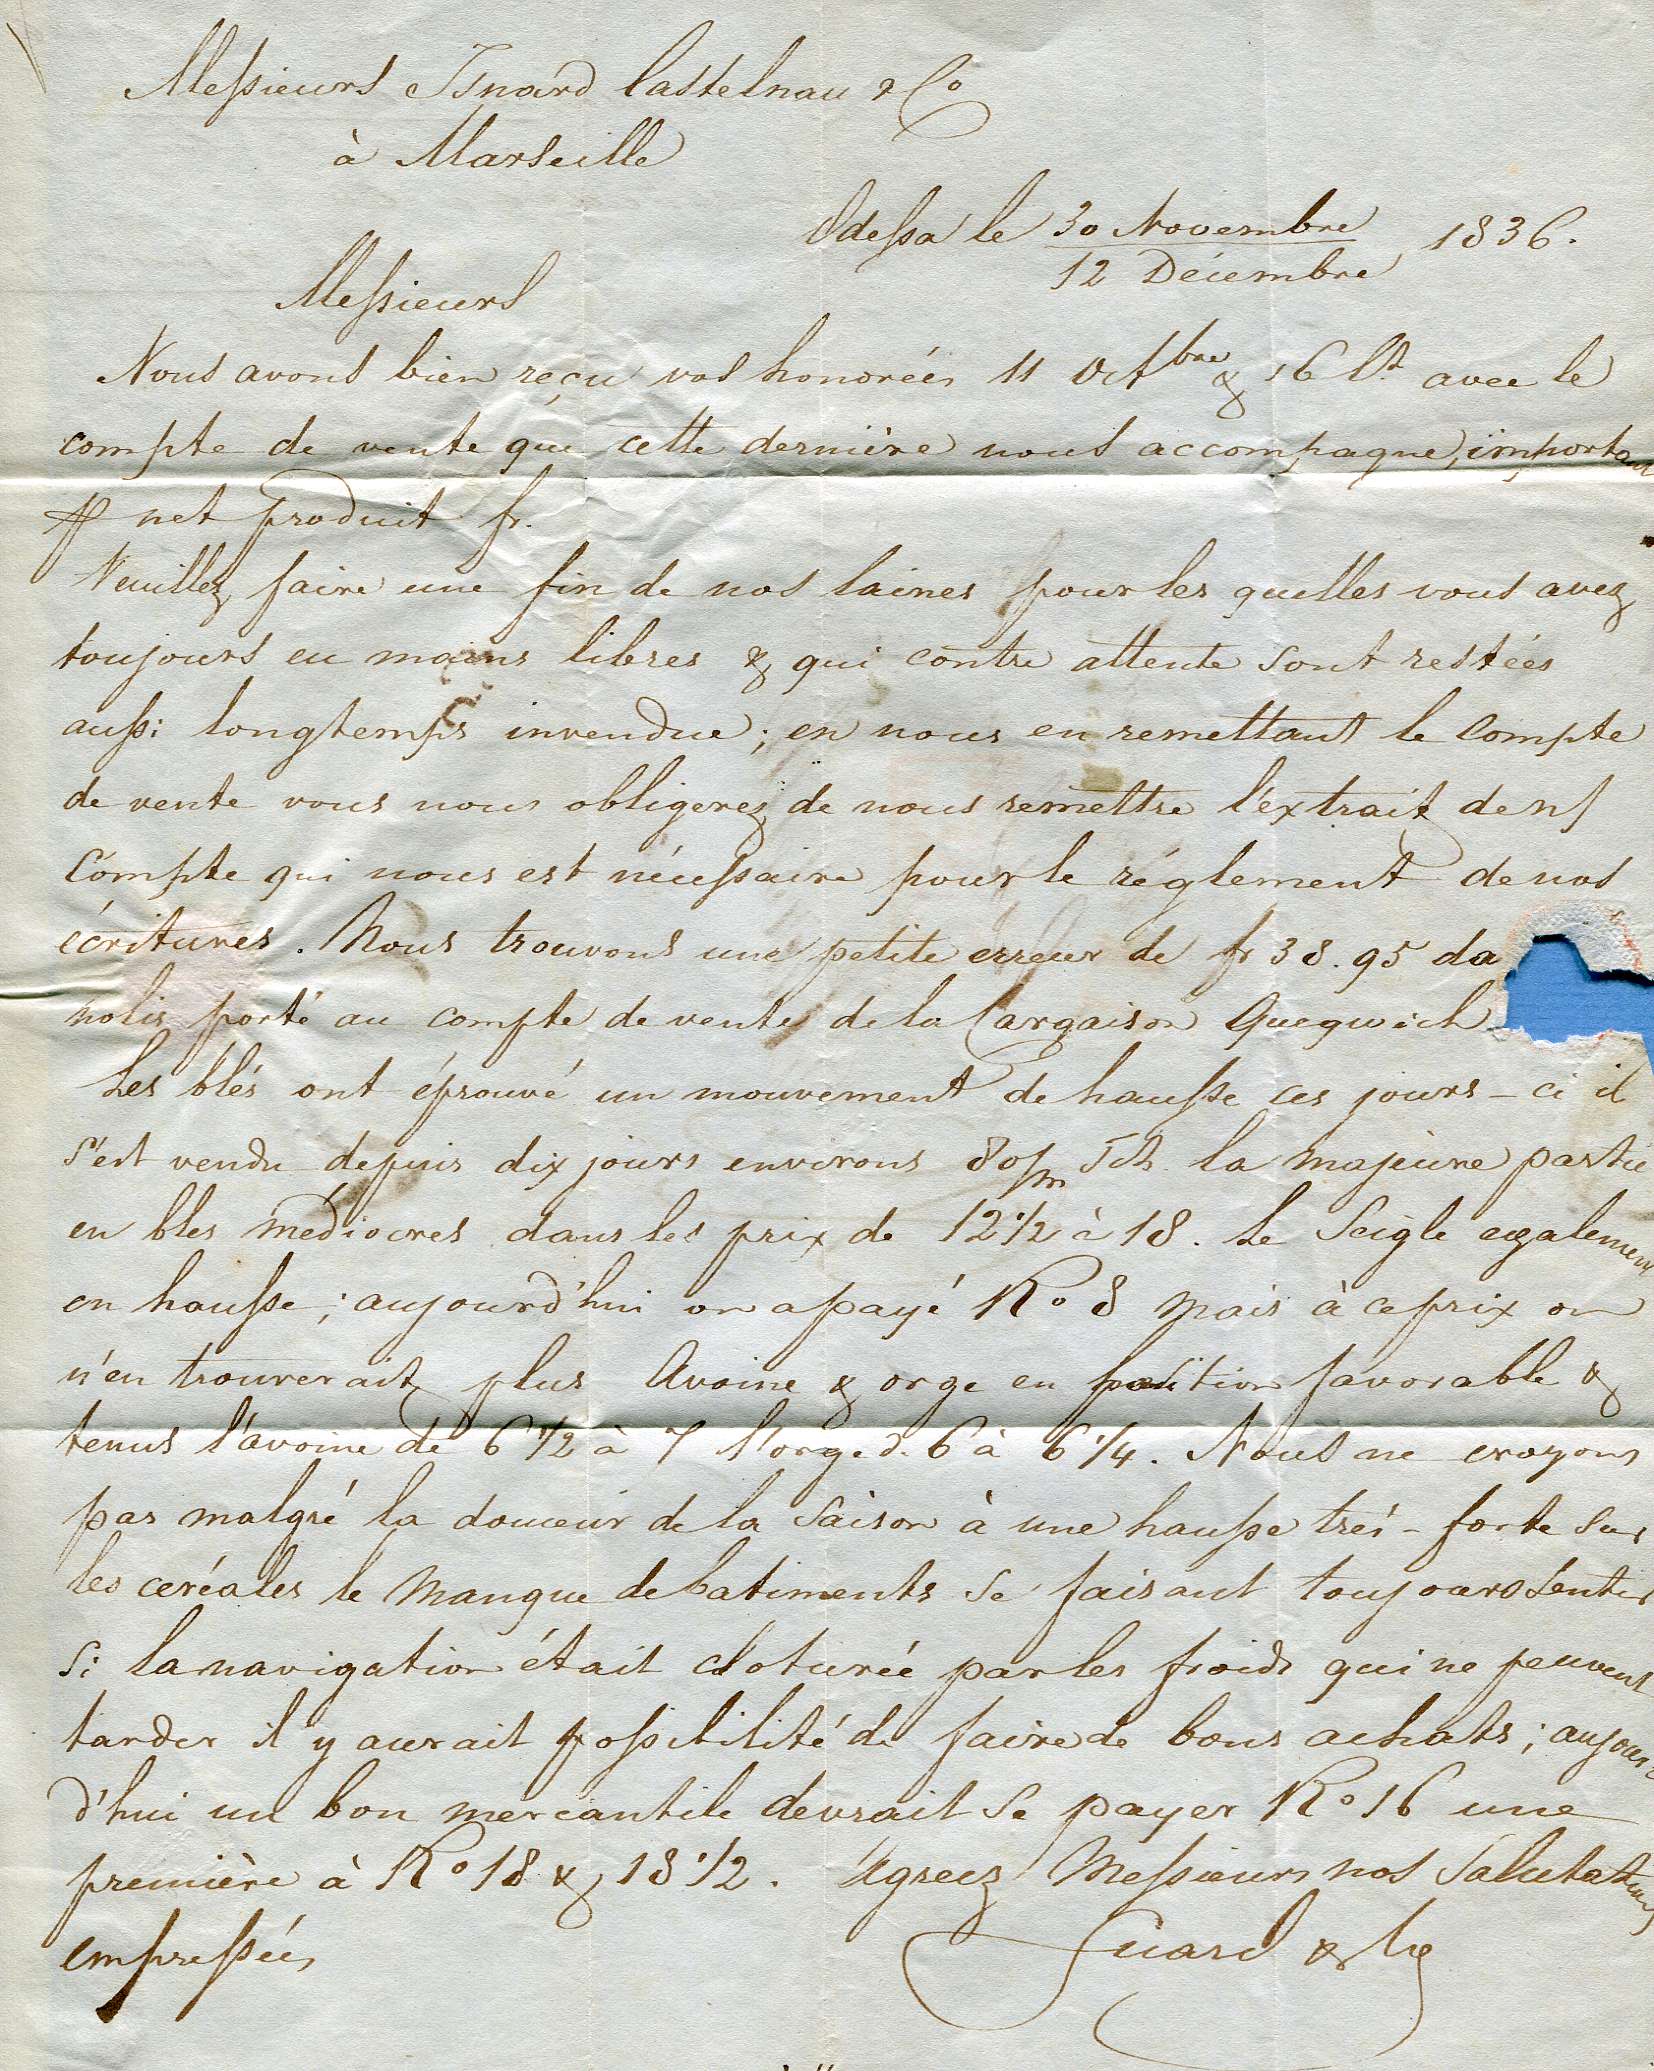 Messieurs Isnard Castelnau & Co
à Marseille
Odessa le 30 Novembre / 12 Décembre 1836.
Messieurs
Nous avons bien reçu vos honorées 11 Octbre & 16 Ct avec le
compte de vente que cette dernière nous accompagne, important
net produit fr.
Veuillez faire une fin de nos laines pour les quelles vous avez
toujours eu mains libres & qui contre attente sont restées
aussi longtemps invendue; en nous en remettant le compte
de vente vous nous obligerez de nous remettre l'extrait de n/
Compte qui nous est nécessaire pour le réglement de nos
écritures. Nous trouvons une petite erreur de fr 38.95 da
nolis porté au compte de vente de la Cargaison Quegwich
Les blés ont éprouvé un mouvement de hausse ces jours-ci il
s'est vendu depuis dix jours environs 80/m Tch. la majeure partie
en bles médiocres dans les prix de 12 1/2 à 18. Le Seigle egalement
en hausse; aujourd'hui on a payé Ro 8 mais à ce prix on
n'en trouverait plus Avoine & orge en position favorable &
tenus l'avoine de 6 1/2 à 7 l'orge d. 6 à 6 1/4. Nous ne croyons
pas malgré la douceur de la Saison à une hausse trés-forte sur
les ceréales le manque de batiments se faisant toujours sentir
Si la navigation était cloturée par les froids qui ne peuvent
tarder il y aurait possibilité de faire de bons achats; aujour-
d'hui un bon mercantile devrait se payer Ro 16 une
première à Ro 18 & 18 1/2. Agreez Messieurs nos Salutations
empressées
Guard & Co